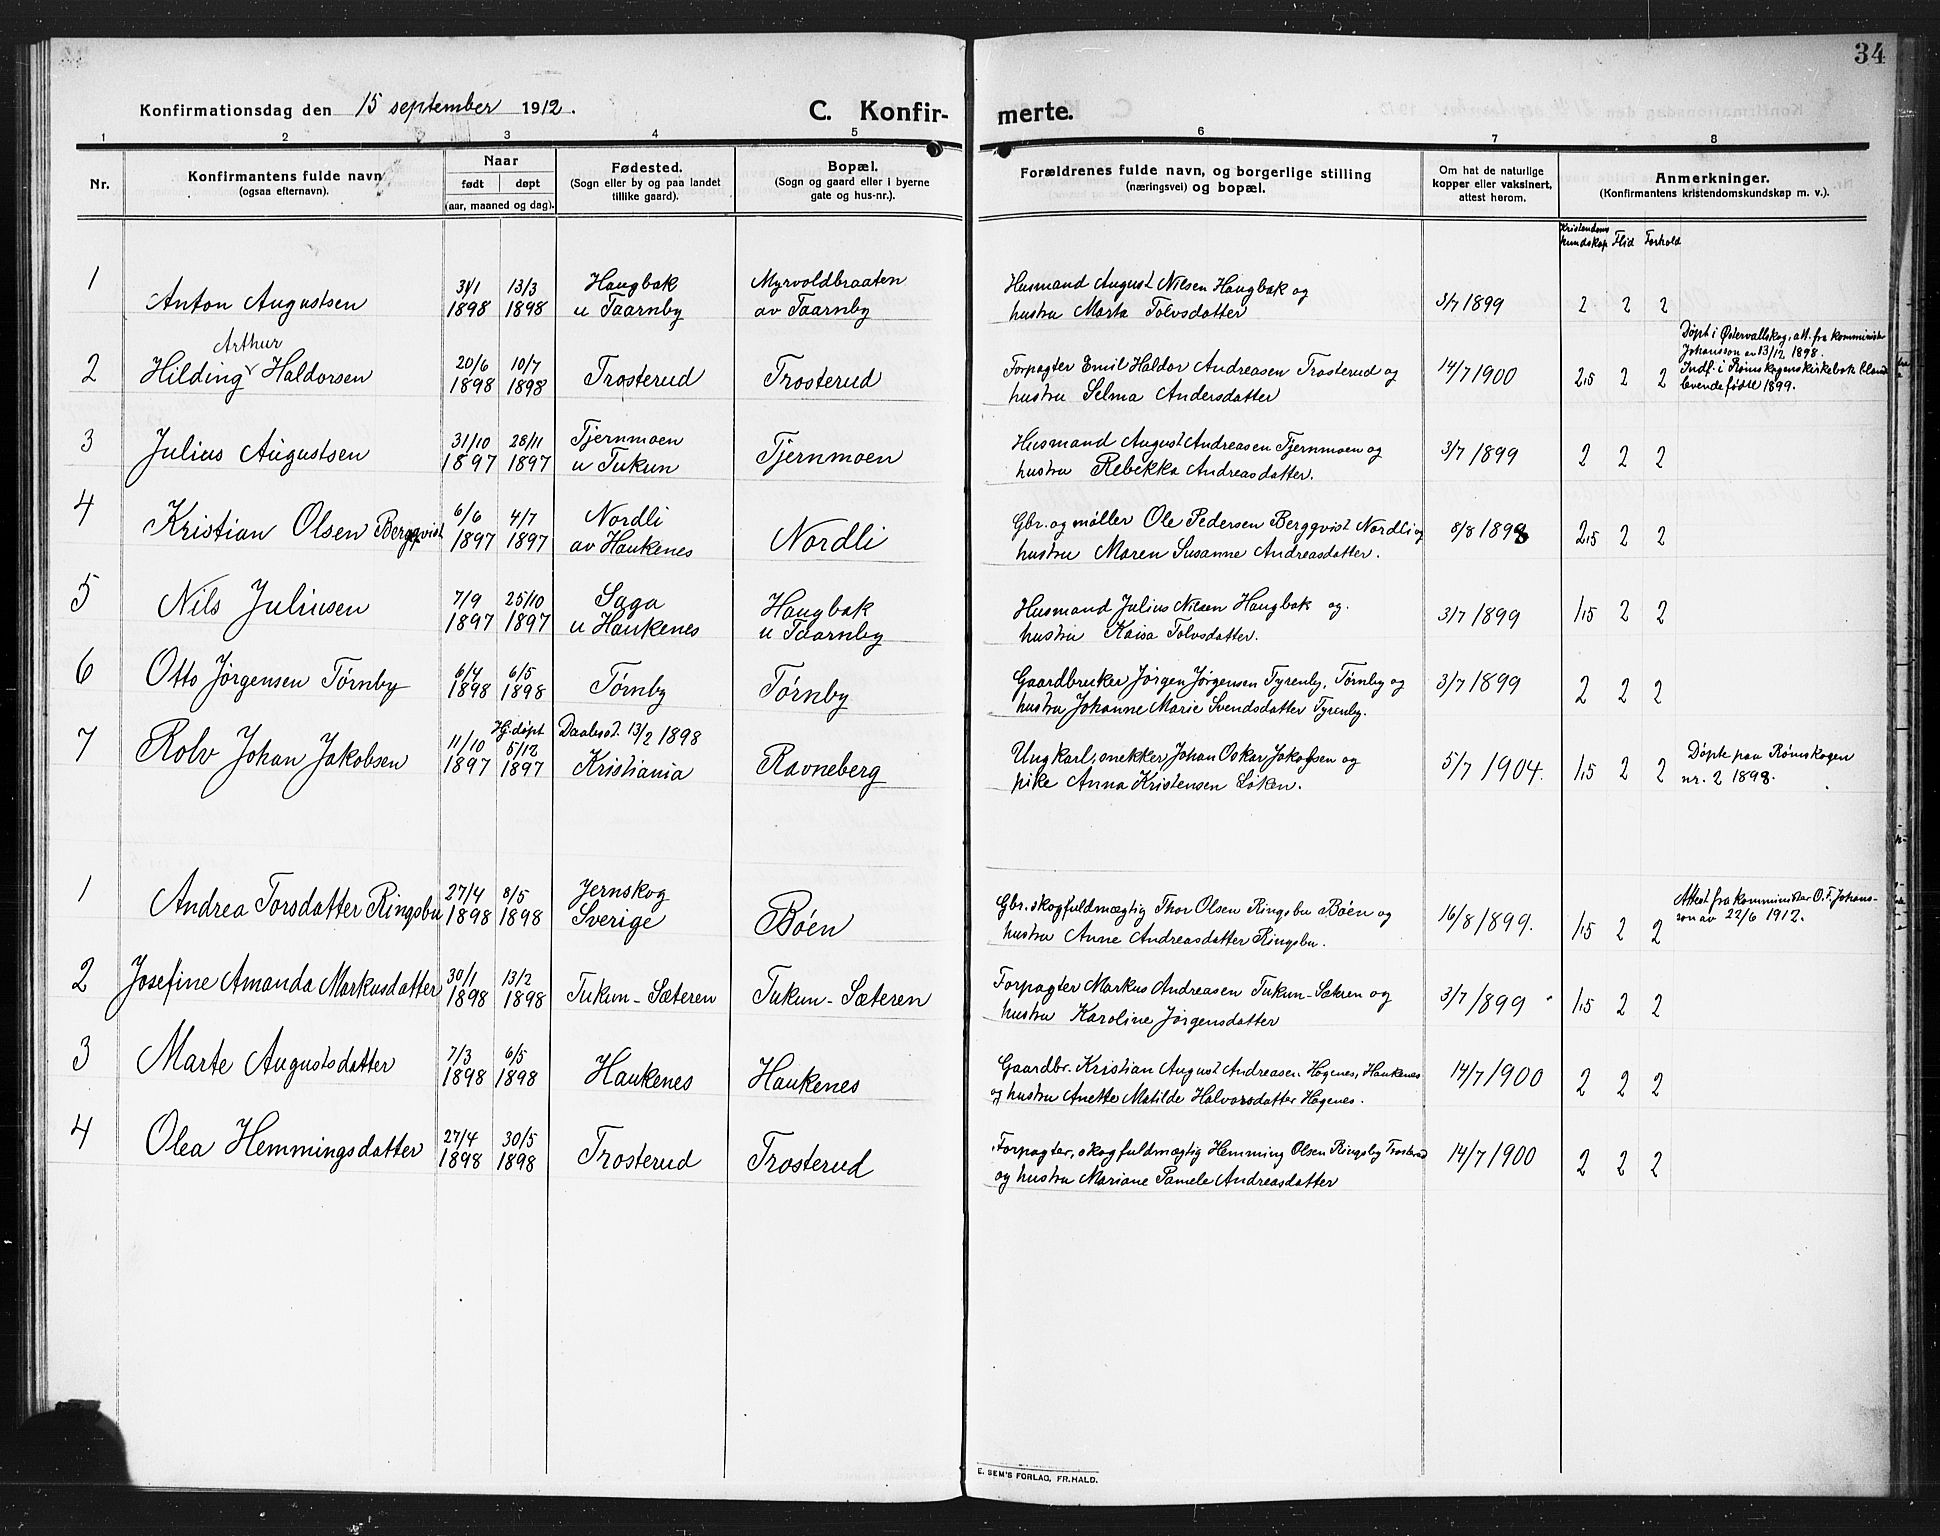 34
Konfirmationsdag den 15 september 1912.
C. Konfirmerte.
1 2 3 4 5 6 7 8
Nr.
Konfirmantens fulde navn
(ogsaa efternavn).
Naar
født døpt
(aar, maaned og dag).
Fødested.
(Sogn eller by og paa landet
tillike gaard).
Bopæl.
(Sogn og gaard eller i byerne
gate og hus-nr.).
Forældrenes fulde navn, og borgerlige stilling
(næringsvei) og bopæl.
Om hat de naturlige
kopper eller vaksinert,
attest herom.
Anmerkninger.
(Konfirmantens kristendomskundskap m. v.).
Kristendoms
kundskap Flid Forhold
1 Anton Augustsen
31/1 1898 13/3 1898
Haugbak
u Taarnby
Myrvoldbraaten
av Taarnby
Husmand August Nilsen Haugbak og
hustru Marta Tolvsdatter
3/7 1899 2 2 2
2 Hilding Arthur Haldorsen
20/6 1898 10/7 1898
Trosterud
Trosterud
Forpagter Emil Haldor Andreasen Trosterud og
hustru Selma Andersdatter
14/7 1900 2,5 2 2
Døpt i Østervallskog, att. fra kominister
Johansson av 13/12 1898.
Indf. i Rømskogens kirkebok bland
levende fødte 1899.
3 Julius Augustsen
31/10 1897 28/11 1897
Tjernmoen
u Tukun
Tjernmoen
Husmand August Andreasen Tjernmoen og
hustru Rebekka Andreasdatter.
3/7 1899 2 2 2
4 Kristian Olsen Bergqvist
6/6 1897 4/7 1897
Nordli
av Haukenes
Nordli
Gbr. og møller Ole Pedersen Bergqvist Nordli og
hustru Maren Susanne Andreasdatter.
8/8 1898 2,5 2 2
5 Nils Juliusen
7/9 1897 25/10 1897
Saga
u Haukenes
Haugbak
u Taarnby
Husmand Julius Nilsen Haugbak og.
hustru Kaisa Tolvsdatter.
3/7 1899 1,5 2 2
6 Otto Jørgensen Tørnby
6/4 1898 6/5 1898
Tørnby
Tørnby
Gaardbruker Jørgen Jørgensen Tyrenby, Tørnby og
hustru Johanne Marie Svendsdatter Tyrenby.
3/7 1899 2 2 2
7 Rolv Johan Jakobsen
11/10 1897 Hj. døpt 5/12 1897
Daabsst. 13/2 1898
Kristiania
Ravneberg
Ungkarl, snekker Johan Oskar Jakobsen og
pike Anna Kristensen Løken.
5/7 1904. 1,5 2 2
Døpte paa Rømskogen
nr. 2 1898.
1 Andrea Torsdatter Ringsbu
27/4 1898 8/5 1898
Jernskog
Sverige
Bøen
Gbr. skogfuldmægtig Thor Olsen Ringsbu Bøen og
hustru Anne Andreasdatter Ringsbu.
16/8 1899. 1,5 2 2
Attest fra komminister O. F. Johans-
son av 22/6 1912.
2 Josefine Amanda Markusdatter
30/1 1898 13/2 1898
Tukun-Sæteren
Tukun-Sæteren
Forpagter Markus Andreasen Tukun-Sæteren og
hustru Karoline Jørgensdatter
3/7 1899 1,5 2 2
3 Marte Augustsdatter
7/3 1898 6/5 1898
Haukenes
Haukenes
Gaardbr. Kristian August Andreasen Høgenes, Haukenes
og hustru Anette Matilde Halvorsdatter Høgenes.
14/7 1900 2 2 2
4 Olea Hemmingsdatter
27/4 1898 30/5 1898
Trosterud
Trosterud
Forpagter, skogfuldmægtig Hemming Olsen Ringsby Trosterud
og hustru Mariane Pamele Andreasdatter
14/7 1900 2 2 2
E. SEM'S FORLAG, FR.HALD.